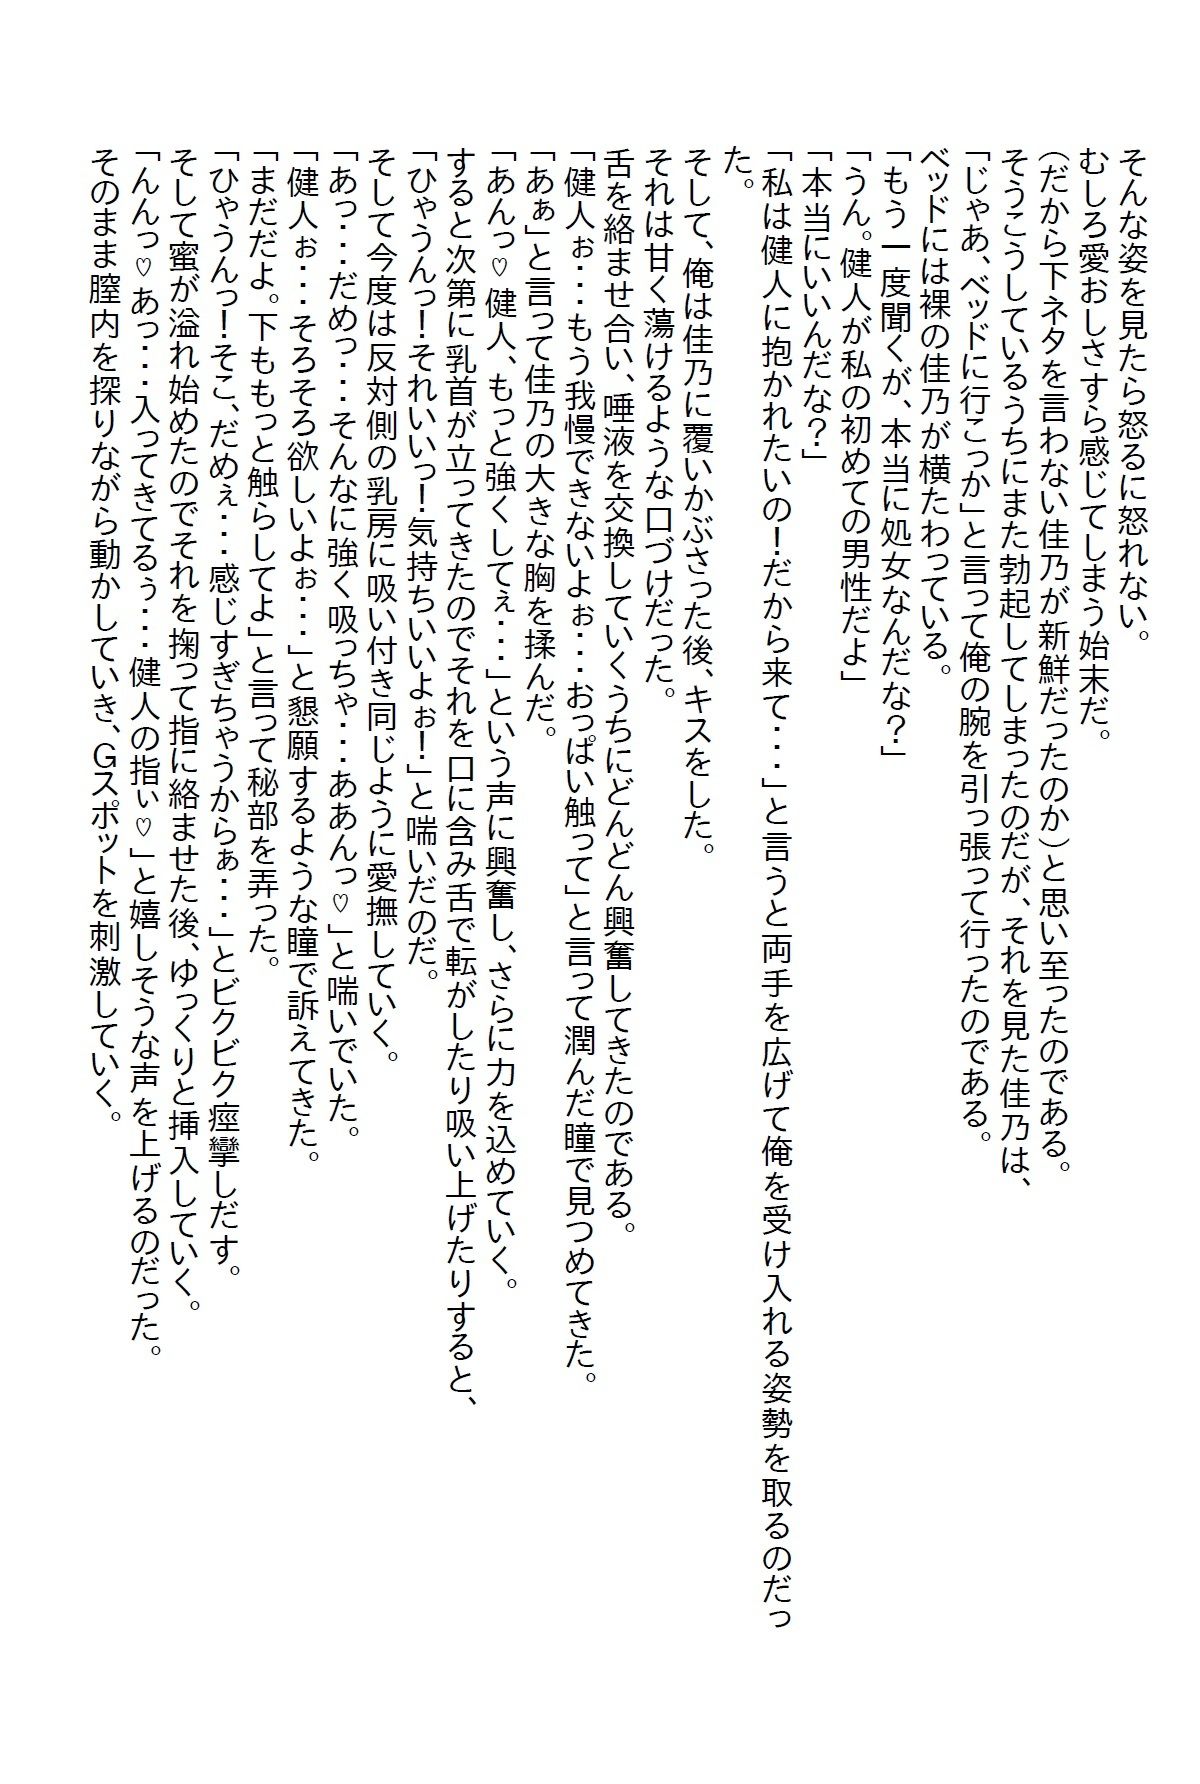 そんな姿を見たら怒るに怒れない。
むしろ愛おしさすら感じてしまう始末だ。
（だから下ネタを言わない佳乃が新鮮だったのか）と思い至ったのである。
そうこうしているうちにまた勃起してしまったのだが、それを見た佳乃は、
「じゃあ、ベッドに行こっか」と言って俺の腕を引っ張って行ったのである。
ベッドには裸の佳乃が横たわっている。
「もう一度聞くが、本当に処女なんだな？」
「うん。健人が私の初めての男性だよ」
「本当にいいんだな？」
「私は健人に抱かれたいの！だから来て・・・」と言うと両手を広げて俺を受け入れる姿勢を取るのだっ
た。
そして、俺は佳乃に覆いかぶさった後、キスをした。
それは甘く蕩けるような口づけだった。
舌を絡ませ合い、唾液を交換していくうちにどんどん興奮してきたのである。
「健人ぉ・・・もう我慢できないよぉ・・・おっぱい触って」と言って潤んだ瞳で見つめてきた。
「あぁ」と言って佳乃の大きな胸を揉んだ。
「あんっ♡健人、もっと強くしてぇ・・・」という声に興奮し、さらに力を込めていく。
すると次第に乳首が立ってきたのでそれを口に含み舌で転がしたり吸い上げたりすると、
「ひゃうんっ！それいいっ！気持ちいいよぉ！」と喘いだのだ。
そして今度は反対側の乳房に吸い付き同じように愛撫していく。
「あっ・・・だめっ・・・そんなに強く吸っちゃ・・・ああんっ♡」と喘いでいた。
「健人ぉ・・・そろそろ欲しいよぉ・・・」と懇願するような瞳で訴えてきた。
「まだだよ。下ももっと触らしてよ」と言って秘部を弄った。
「ひゃうんっ！そこ、だめぇ・・・感じすぎちゃうからぁ・・・」とビクビク痙攣しだす。
そして蜜が溢れ始めたのでそれを掬って指に絡ませた後、ゆっくりと挿入していく。
「んんっ♡あっ・・・入ってきてるぅ・・・健人の指ぃ♡」と嬉しそうな声を上げるのだった。
そのまま膣内を探りながら動かしていき、Ｇスポットを刺激していく。